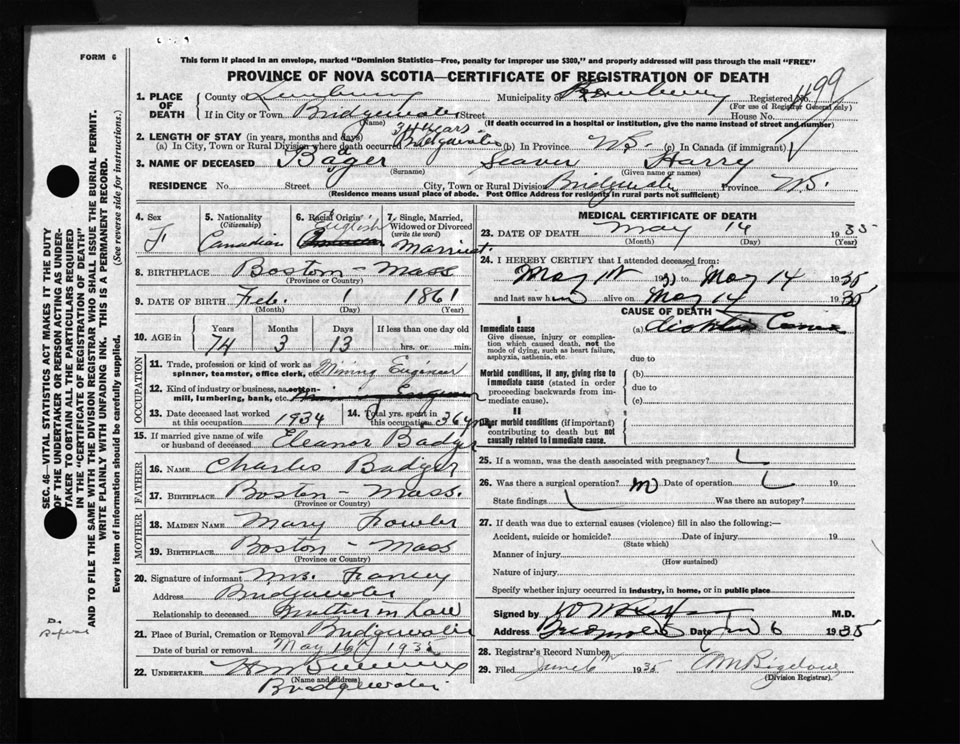 FORM 6
This form if placed in an envelope, marked "Dominion Statistics—Free, penalty for improper use $300," and properly addressed will pass through the mail "FREE"
PROVINCE OF NOVA SCOTIA—CERTIFICATE OF REGISTRATION OF DEATH
SEC. 46—VITAL STATISTICS ACT MAKES IT THE DUTY
OF THE UNDERTAKER OR PERSON ACTING AS UNDER-
TAKER TO OBTAIN ALL THE PARTICULARS REQUIRED
IN THE "CERTIFICATE OF REGISTRATION OF DEATH"
AND TO FILE THE SAME WITH THE DIVISION REGISTRAR WHO SHALL ISSUE THE BURIAL PERMIT.
WRITE PLAINLY WITH UNFADING INK. THIS IS A PERMANENT RECORD.
Every item of information should be carefully supplied. (See reverse side for instructions.)
1. PLACE OF DEATH County of Lunenburg Municipality of Registered No. 499
(For use of Registrar General only)
If in City or Town Bridgewater Street House No.
(Name) (If death occurred in a hospital or institution, give the name instead of street and number)
2. LENGTH OF STAY (in years, months and days) 34 years
(a) In City, Town or Rural Division where death occurred Bridgewater (b) In Province N.S. (c) In Canada (if immigrant)
3. NAME OF DECEASED Badger Seaver Harry
(Surname) (Given name or names)
RESIDENCE No. Street City, Town or Rural Division Bridgewater Province N.S.
(Residence means usual place of abode. Post Office Address for residents in rural parts not sufficient)
4. Sex
5. Nationality (Citizenship) Canadian
6. Racial Origin English
7. Single, Married, Widowed or Divorced (write the word) Married
8. BIRTHPLACE Boston - Mass
(Province or Country)
9. DATE OF BIRTH Feb. 1 1861
(Month) (Day) (Year)
10. AGE in Years 74 Months 3 Days 13 If less than one day old hrs. or min.
OCCUPATION
11. Trade, profession or kind of work as spinner, teamster, office clerk, etc. Mining Engineer
12. Kind of industry or business, as cotton-mill, lumbering, bank, etc. Engineer
13. Date deceased last worked at this occupation 1934
14. Total yrs. spent in this occupation 36 yrs
15. If married give name of wife or husband of deceased Eleanor Badger
FATHER
16. NAME Charles Badger
17. BIRTHPLACE Boston - Mass.
(Province or Country)
MOTHER
18. MAIDEN NAME Mary Fowler
19. BIRTHPLACE Boston - Mass
(Province or Country)
20. Signature of informant Mrs.
Address Bridgewater
Relationship to deceased Brother in Law
21. Place of Burial, Cremation or Removal Bridgewater
Date of burial or removal May 16th 1935
22. UNDERTAKER
(Name and address) Bridgewater
MEDICAL CERTIFICATE OF DEATH
23. DATE OF DEATH May 14 1935
(Month) (Day) (Year)
24. I HEREBY CERTIFY that I attended deceased from:
May 193 to May 14 1935
and last saw him alive on May 14 1935
CAUSE OF DEATH
I
Immediate cause (a)
Give disease, injury or complication which caused death, not the mode of dying, such as heart failure, asphyxia, asthenia, etc. due to
Morbid conditions, if any, giving rise to immediate cause (stated in order proceeding backwards from immediate cause). (b)
due to
(c)
II
Other morbid conditions (if important) contributing to death but not causally related to immediate cause.
25. If a woman, was the death associated with pregnancy?
26. Was there a surgical operation? no Date of operation 19
State findings Was there an autopsy?
27. If death was due to external causes (violence) fill in also the following:—
Accident, suicide or homicide? Date of injury 19
(State which)
Manner of injury
(How sustained)
Nature of injury
Specify whether injury occurred in industry, in home, or in public place
Signed by M.D.
Address Bridgewater Date 6 1935
28. Registrar's Record Number
29. Filed June 6th 1935 Bigelow
(Division Registrar).